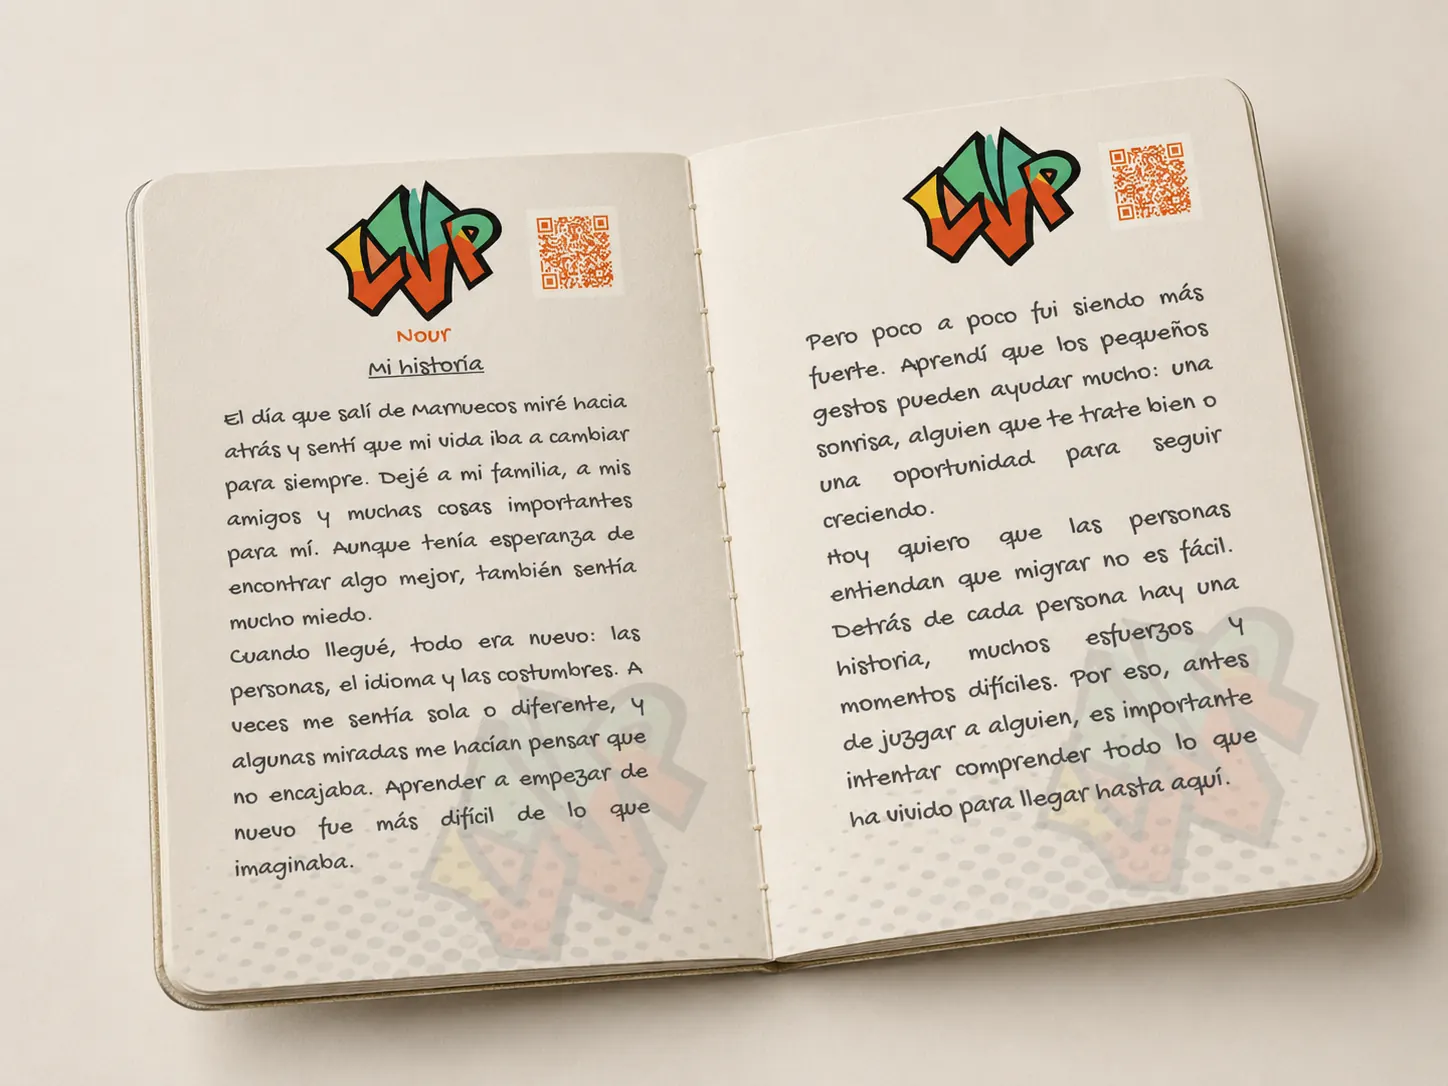 LVP
Nour
Mi historia
El día que salí de Marruecos miré hacia
atrás y sentí que mi vida iba a cambiar
para siempre. Dejé a mi familia, a mis
amigos y muchas cosas importantes
para mí. Aunque tenía esperanza de
encontrar algo mejor, también sentía
mucho miedo.
Cuando llegué, todo era nuevo: las
personas, el idioma y las costumbres. A
veces me sentía sola o diferente, y
algunas miradas me hacían pensar que
no encajaba. Aprender a empezar de
nuevo fue más difícil de lo que
imaginaba.
LVP
LVP
Pero poco a poco fui siendo más
fuerte. Aprendí que los pequeños
gestos pueden ayudar mucho: una
sonrisa, alguien que te trate bien o
una oportunidad para seguir
creciendo.
Hoy quiero que las personas
entiendan que migrar no es fácil.
Detrás de cada persona hay una
historia, muchos esfuerzos y
momentos difíciles. Por eso, antes
de juzgar a alguien, es importante
intentar comprender todo lo que
ha vivido para llegar hasta aquí.
LVP